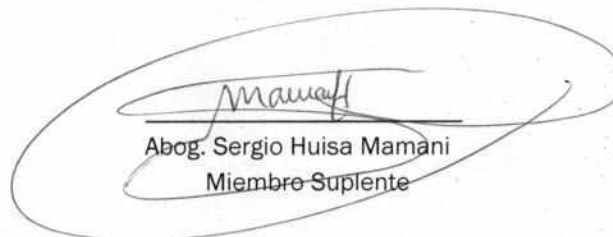 Abog. Sergio Huisa Mamani
Miembro Suplente